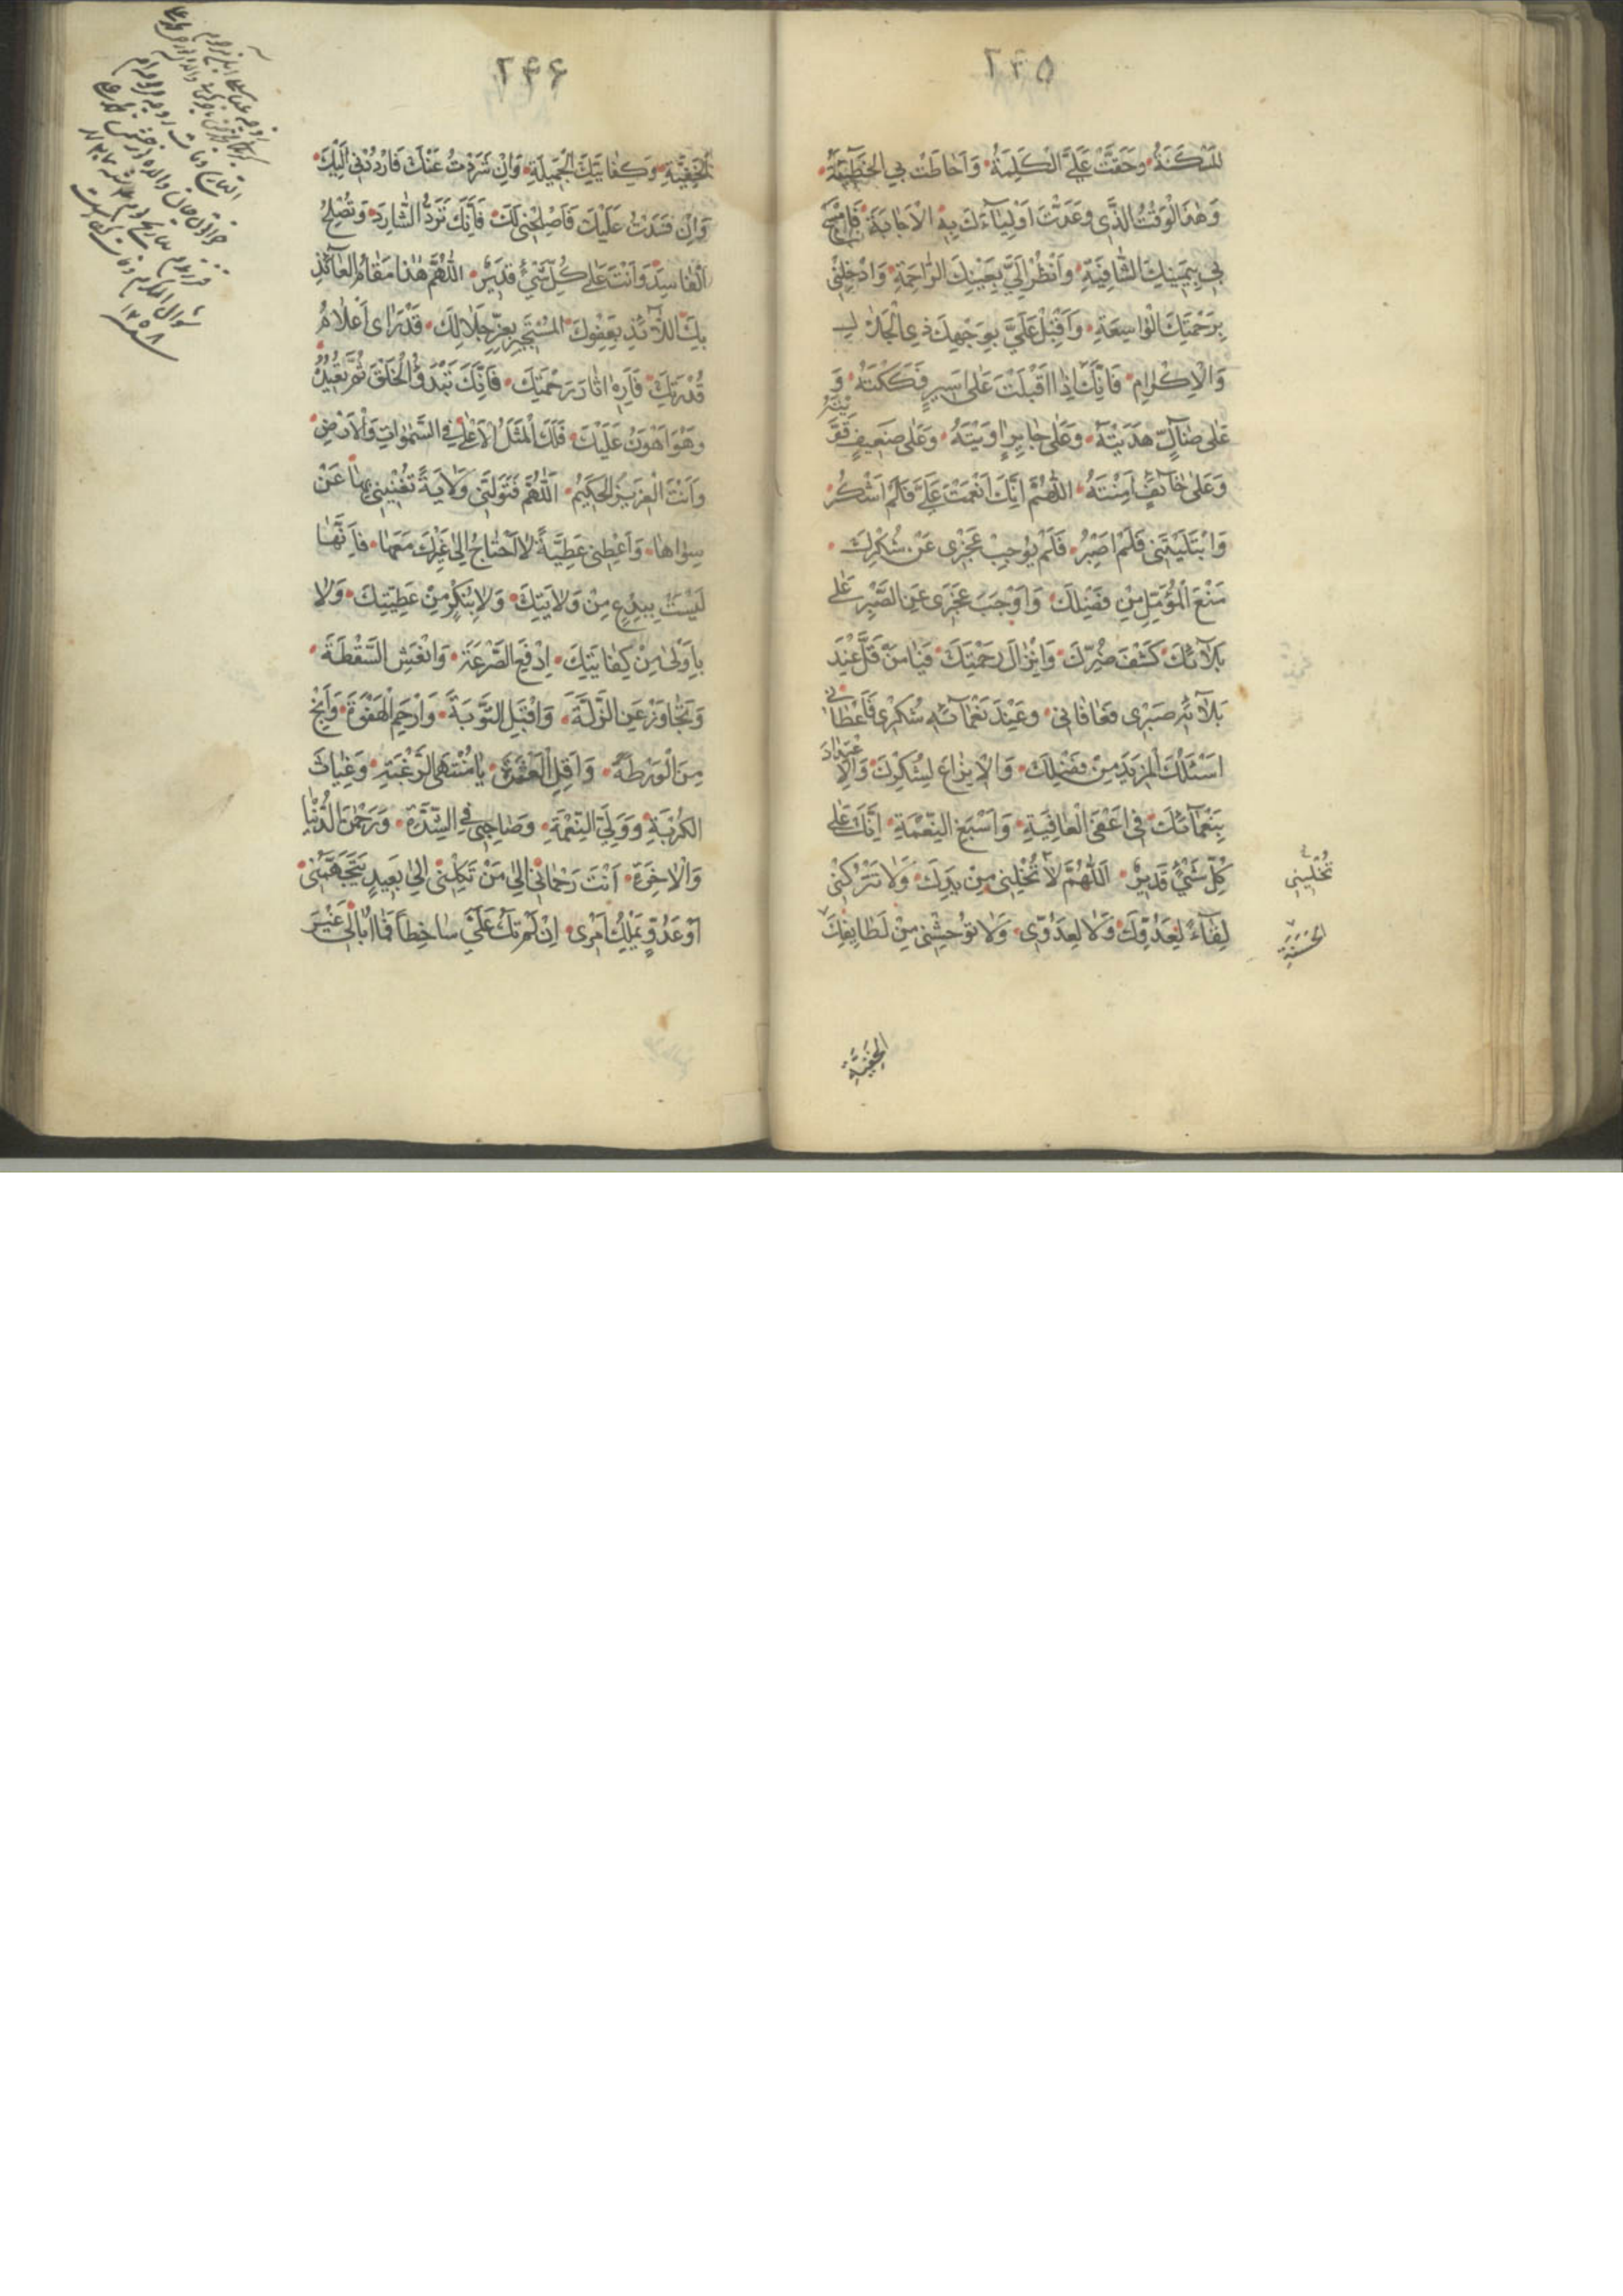 ٢۴۵
الْمَسْكَنَةُ وَحَقَّتْ عَلَيَّ الْكَلِمَةُ وَاَحَاطَتْ بِيَ الْخَطٓيئَةُ
وَهٰذَا الْوَقْتُ الَّذٰي وَعَدْتَ اَوْلِيٰاۤءَكَ بِهِ الْاِجَابَةَ فَامْسَحْ
بِي بِيَمِينِكَ الشّٰافِيَةِ وَانْظُرْ اِلَيَّ بِعَيْنِكَ الرّٰاحِمَةِ وَادْخِلْنٰي
بِرَحْمَتِكَ الْوٰاسِعَةِ وَاَقْبِلْ عَلَيَّ بِوَجْهِكَ ذِي الْجَلالِ
وَالْاِكْرٰامِ فَاِنَّكَ اِذٰا اَقْبَلْتَ عَلٰى اَسِيرٍ فَكَكْتَهُ وَ
عَلٰى ضٰاۤلٍّ هَدَيْتَهُ وَعَلٰى حٰايِرٍ اٰوَيْتَهُ وَعَلٰى ضَعِيفٍ قَوَّ
يْتَهُ
وَعَلٰى خٰاۤئِفٍ اٰمَنْتَهُ اللّٰهُمَّ اِنَّكَ اَنْعَمْتَ عَلَيَّ فَلَمْ اَشْكُرْ
وَابْتَلَيْتَنٰي فَلَمْ اَصْبِرْ فَلَمْ يُوجِبْ عَجْزٰي عَنْ شُكْرِكَ
مَنْعَ الْمُؤَمَّلِ مِنْ فَضْلِكَ وَاَوْجَبَ عَجْزٰي عَنِ الصَّبْرِ عَلٰى
بَلاۤئِكَ كَشْفَ ضُرِّكَ وَاِنْزٰالَ رَحْمَتِكَ فَيٰا مَنْ قَلَّ عِنْدَ
بَلاۤئِهِ صَبْرٰي فَعٰافٰانٰي وَعِنْدَ نَعْمٰاۤئِهِ شُكْرٰي فَاَعْطٰانٰي
اَسْئَلُكَ الْمَزِيدَ مِنْ فَضْلِكَ وَالْاِيزٰاعَ لِشُكْرِكَ وَالْاِ
عْتِدٰادَ
بِنَعْمٰاۤئِكَ فٰي اَعْفَى الْعٰافِيَةِ وَاَسْبَغِ النِّعْمَةِ اِنَّكَ عَلٰى
كُلِّ شَيْءٍ قَدِيرٌ اَللّٰهُمَّ لاٰ تُخْلِنٰي مِنْ يَدِكَ وَلاٰ تَتْرُكْنٰي
لِقٰاۤءً لِعَدُوِّكَ وَلاٰ لِعَدُوّٰي وَلاٰ تُوحِشْنٰي مِنْ لَطٰايِفِكَ
تُخَلِّينٰي
الْخَفِيَّةِ
٢۴۶
الْخَفِيَّةِ وَكِفٰايَتِكَ الْجَمِيلَةِ وَاِنْ شَرَدْتُ عَنْكَ فَارْدُدْنٰي اِلَيْكَ
وَاِنْ فَسَدْتُ عَلَيْكَ فَاَصْلِحْنٰي لَكَ فَاِنَّكَ تَرُدُّ الشّٰارِدَ وَتُصْلِحُ
الْفٰاسِدَ وَاَنْتَ عَلٰى كُلِّ شَيْءٍ قَدِيرٌ اللّٰهُمَّ هٰذٰا مَقٰامُ الْعٰاۤئِذِ
بِكَ اللاّٰۤئِذِ بِعَفْوِكَ الْمُسْتَجِيرِ بِعِزِّ جَلاٰلِكَ قَدْ رَاٰى اَعْلاٰمَ
قُدْرَتِكَ فَاَرِهِ اٰثٰارَ رَحْمَتِكَ فَاِنَّكَ تَبْدَؤُ الْخَلْقَ ثُمَّ تُعِيدُهُ
وَهُوَ اَهْوَنُ عَلَيْكَ فَلَكَ الْمَثَلُ الْاَعْلٰى فِي السَّمٰوٰاتِ وَالْاَرْضِ
وَاَنْتَ الْعَزِيزُ الْحَكِيمُ اَللّٰهُمَّ فَتَوَلَّنٰي وَلاٰيَةً تُغْنِينٰي بِهٰا عَنْ
سِوٰاهٰا وَاَعْطِنٰي عَطِيَّةً لاٰ اَحْتٰاجُ اِلٰى غَيْرِكَ مَعَهٰا فَاِنَّهٰا
لَيْسَتْ بِبِدْعٍ مِنْ وَلاٰيَتِكَ وَلاٰ بِنُكْرٍ مِنْ عَطِيَّتِكَ وَلاٰ
بِاَوْلٰى مِنْ كِفٰايَتِكَ اِدْفَعِ الصَّرْعَةَ وَانْعَشِ السَّقْطَةَ
وَتَجٰاوَزْ عَنِ الزَّلَّةِ وَاقْبَلِ التَّوْبَةَ وَارْحَمِ الْهَفْوَةَ وَاَنْجِ
مِنَ الْوَرْطَةِ وَاَقِلِ الْعَثْرَةَ يٰا مُنْتَهَى الرَّغْبَةِ وَغِيٰاثَ
الْكُرْبَةِ وَوَلِيَّ النِّعْمَةِ وَصٰاحِبٰي فِي الشِّدَّةِ وَرَحْمٰنَ الدُّنْيٰا
وَالْاٰخِرَةِ اَنْتَ رَحْمٰانٰي اِلٰى مَنْ تَكِلُنٰي اِلٰى بَعِيدٍ يَتَجَهَّمُنٰي
اَوْ عَدُوٍّ يَمْلِكُ اَمْرٰي اِنْ لَمْ تَكُ عَلَيَّ سٰاخِطاً فَمٰا اُبٰالٰي غَيْرَ
شوال المكرم
١٢٥٨